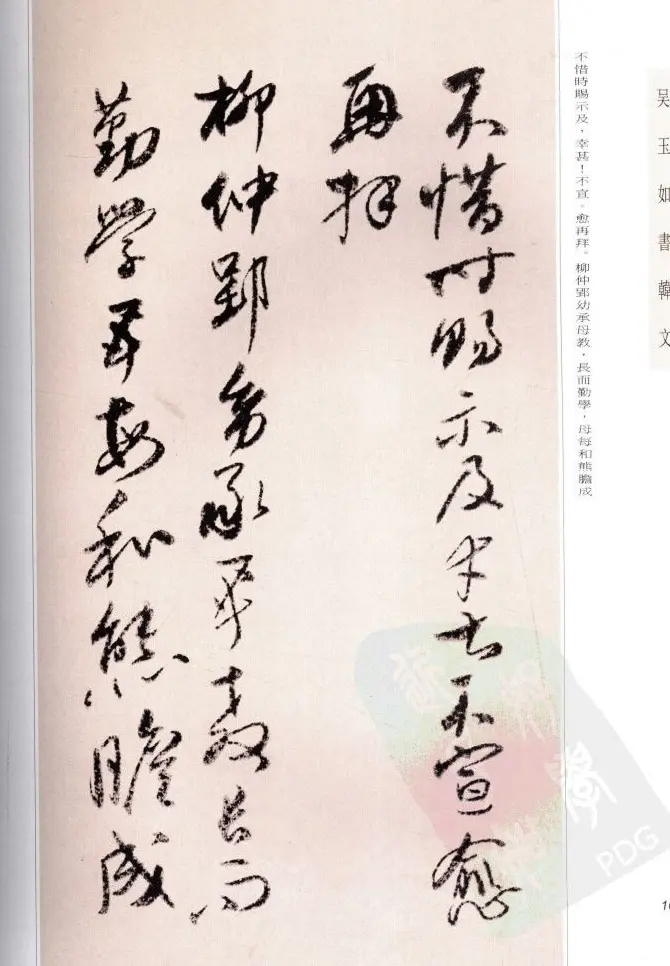 吴玉如書韓文
不惜時賜示及，幸甚！不宣。愈再拜。柳仲郢幼承母教，長而勤學，母每和熊膽成
不惜時賜示及幸甚不宣愈
再拜
柳仲郢幼承母教長而
勤學母每和熊膽成
PDG